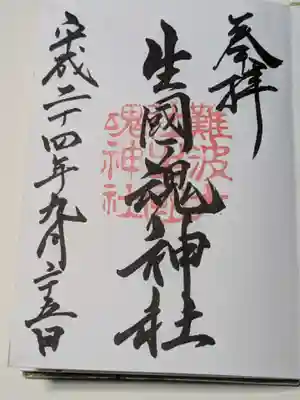 奉拝
生國魂神社
平成二十四年九月二十五日
難波大社
魂神社